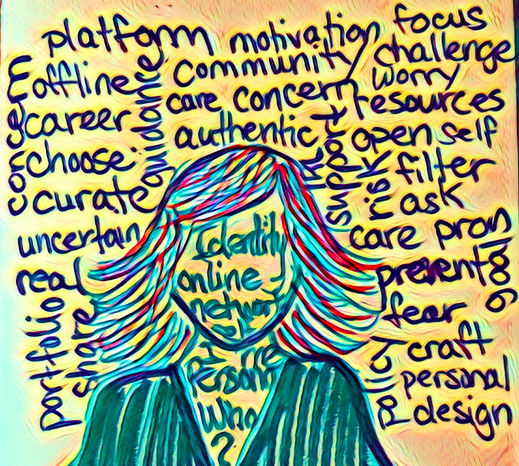 platform motivation focus
offline community challenge
concern guidance worry
career care concern resources
authentic support open self
choose risk filter
curate ask
uncertain care
real prevent
fear
portfolio share craft
policy personal
design
Identity
online
network
me
Who
?